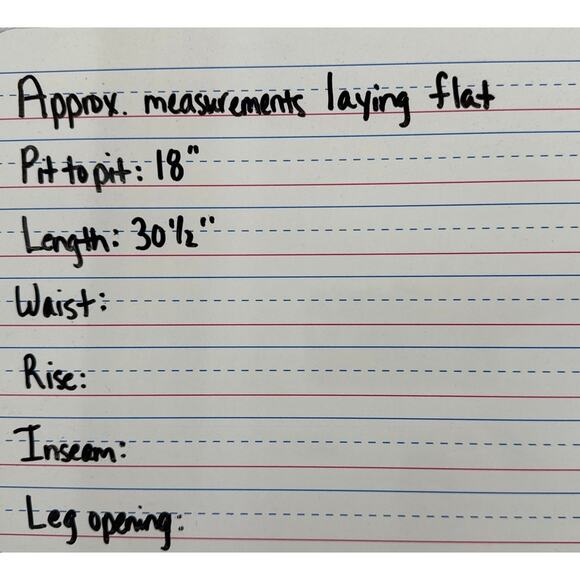 Approx. measurements laying flat
Pit to pit: 18"
Length: 30 1/2"
Waist:
Rise:
Inseam:
Leg opening: